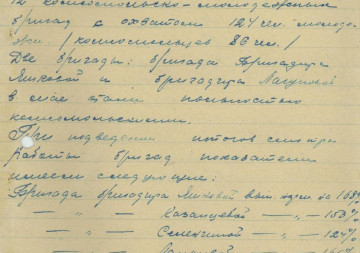 12 комсомольско-молодежных
бригад с охватом 124 чел. молоде-
жи /комсомольцев 86 чел./
Две бригады: бригада бригадира
и бригадира
в мае стали полностью
комсомольскими.
При подведении итогов смотра
работы бригад показатели
имели следующие:
Бригада бригадира вып. нормы на 168%
— „ — Казанцевой — „ — 150%
— „ — Селенгиной — „ — 124%